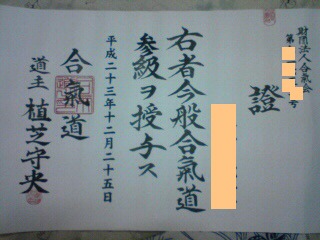 財団法人合氣会
第
号
證
右者今般合氣道
参級ヲ授与ス
平成二十三年十二月二十五日
合氣道
道主 植芝守央